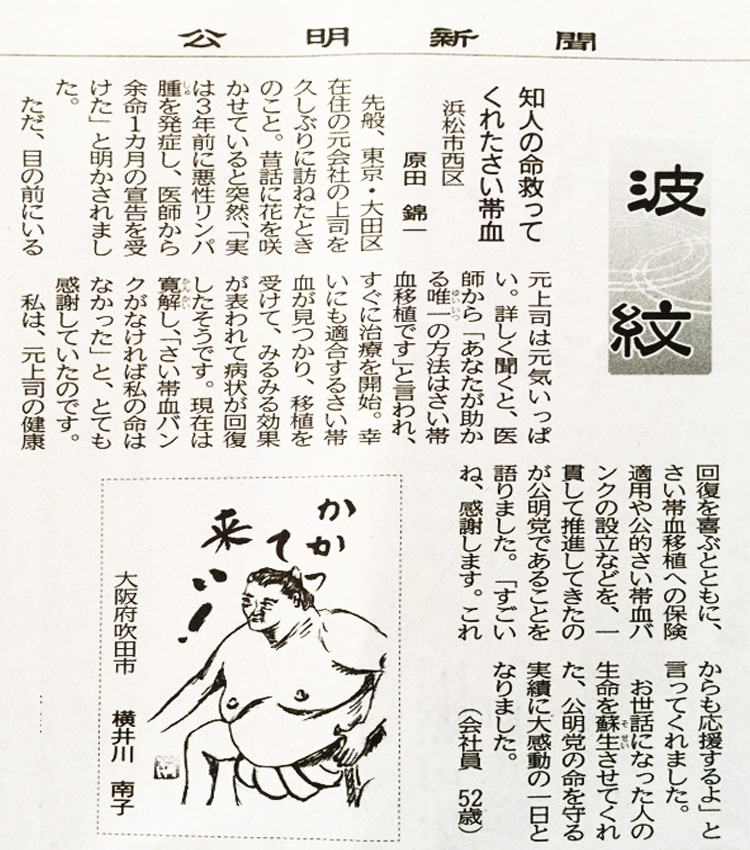 公明新聞
波紋
知人の命救って
くれたさい帯血
浜松市西区
原田 錦一
先般、東京・大田区
在住の元会社の上司を
久しぶりに訪ねたとき
のこと。昔話に花を咲
かせていると突然、「実
は3年前に悪性リンパ
腫を発症し、医師から
余命1カ月の宣告を受
けた」と明かされまし
た。
ただ、目の前にいる
元上司は元気いっぱ
い。詳しく聞くと、医
師から「あなたが助か
る唯一の方法はさい帯
血移植です」と言われ、
すぐに治療を開始。幸
いにも適合するさい帯
血が見つかり、移植を
受けて、みるみる効果
が表われて病状が回復
したそうです。現在は
寛解し、「さい帯血バン
クがなければ私の命は
なかった」と、とても
感謝していたのです。
私は、元上司の健康
回復を喜ぶとともに、
さい帯血移植への保険
適用や公的さい帯血バ
ンクの設立などを、一
貫して推進してきたの
が公明党であることを
語りました。「すごい
ね、感謝します。これ
からも応援するよ」と
言ってくれました。
お世話になった人の
生命を蘇生させてくれ
た、公明党の命を守る
実績に大感動の一日と
なりました。
(会社員 52歳)
かかっ
て
来い!
大阪府吹田市 横井川 南子